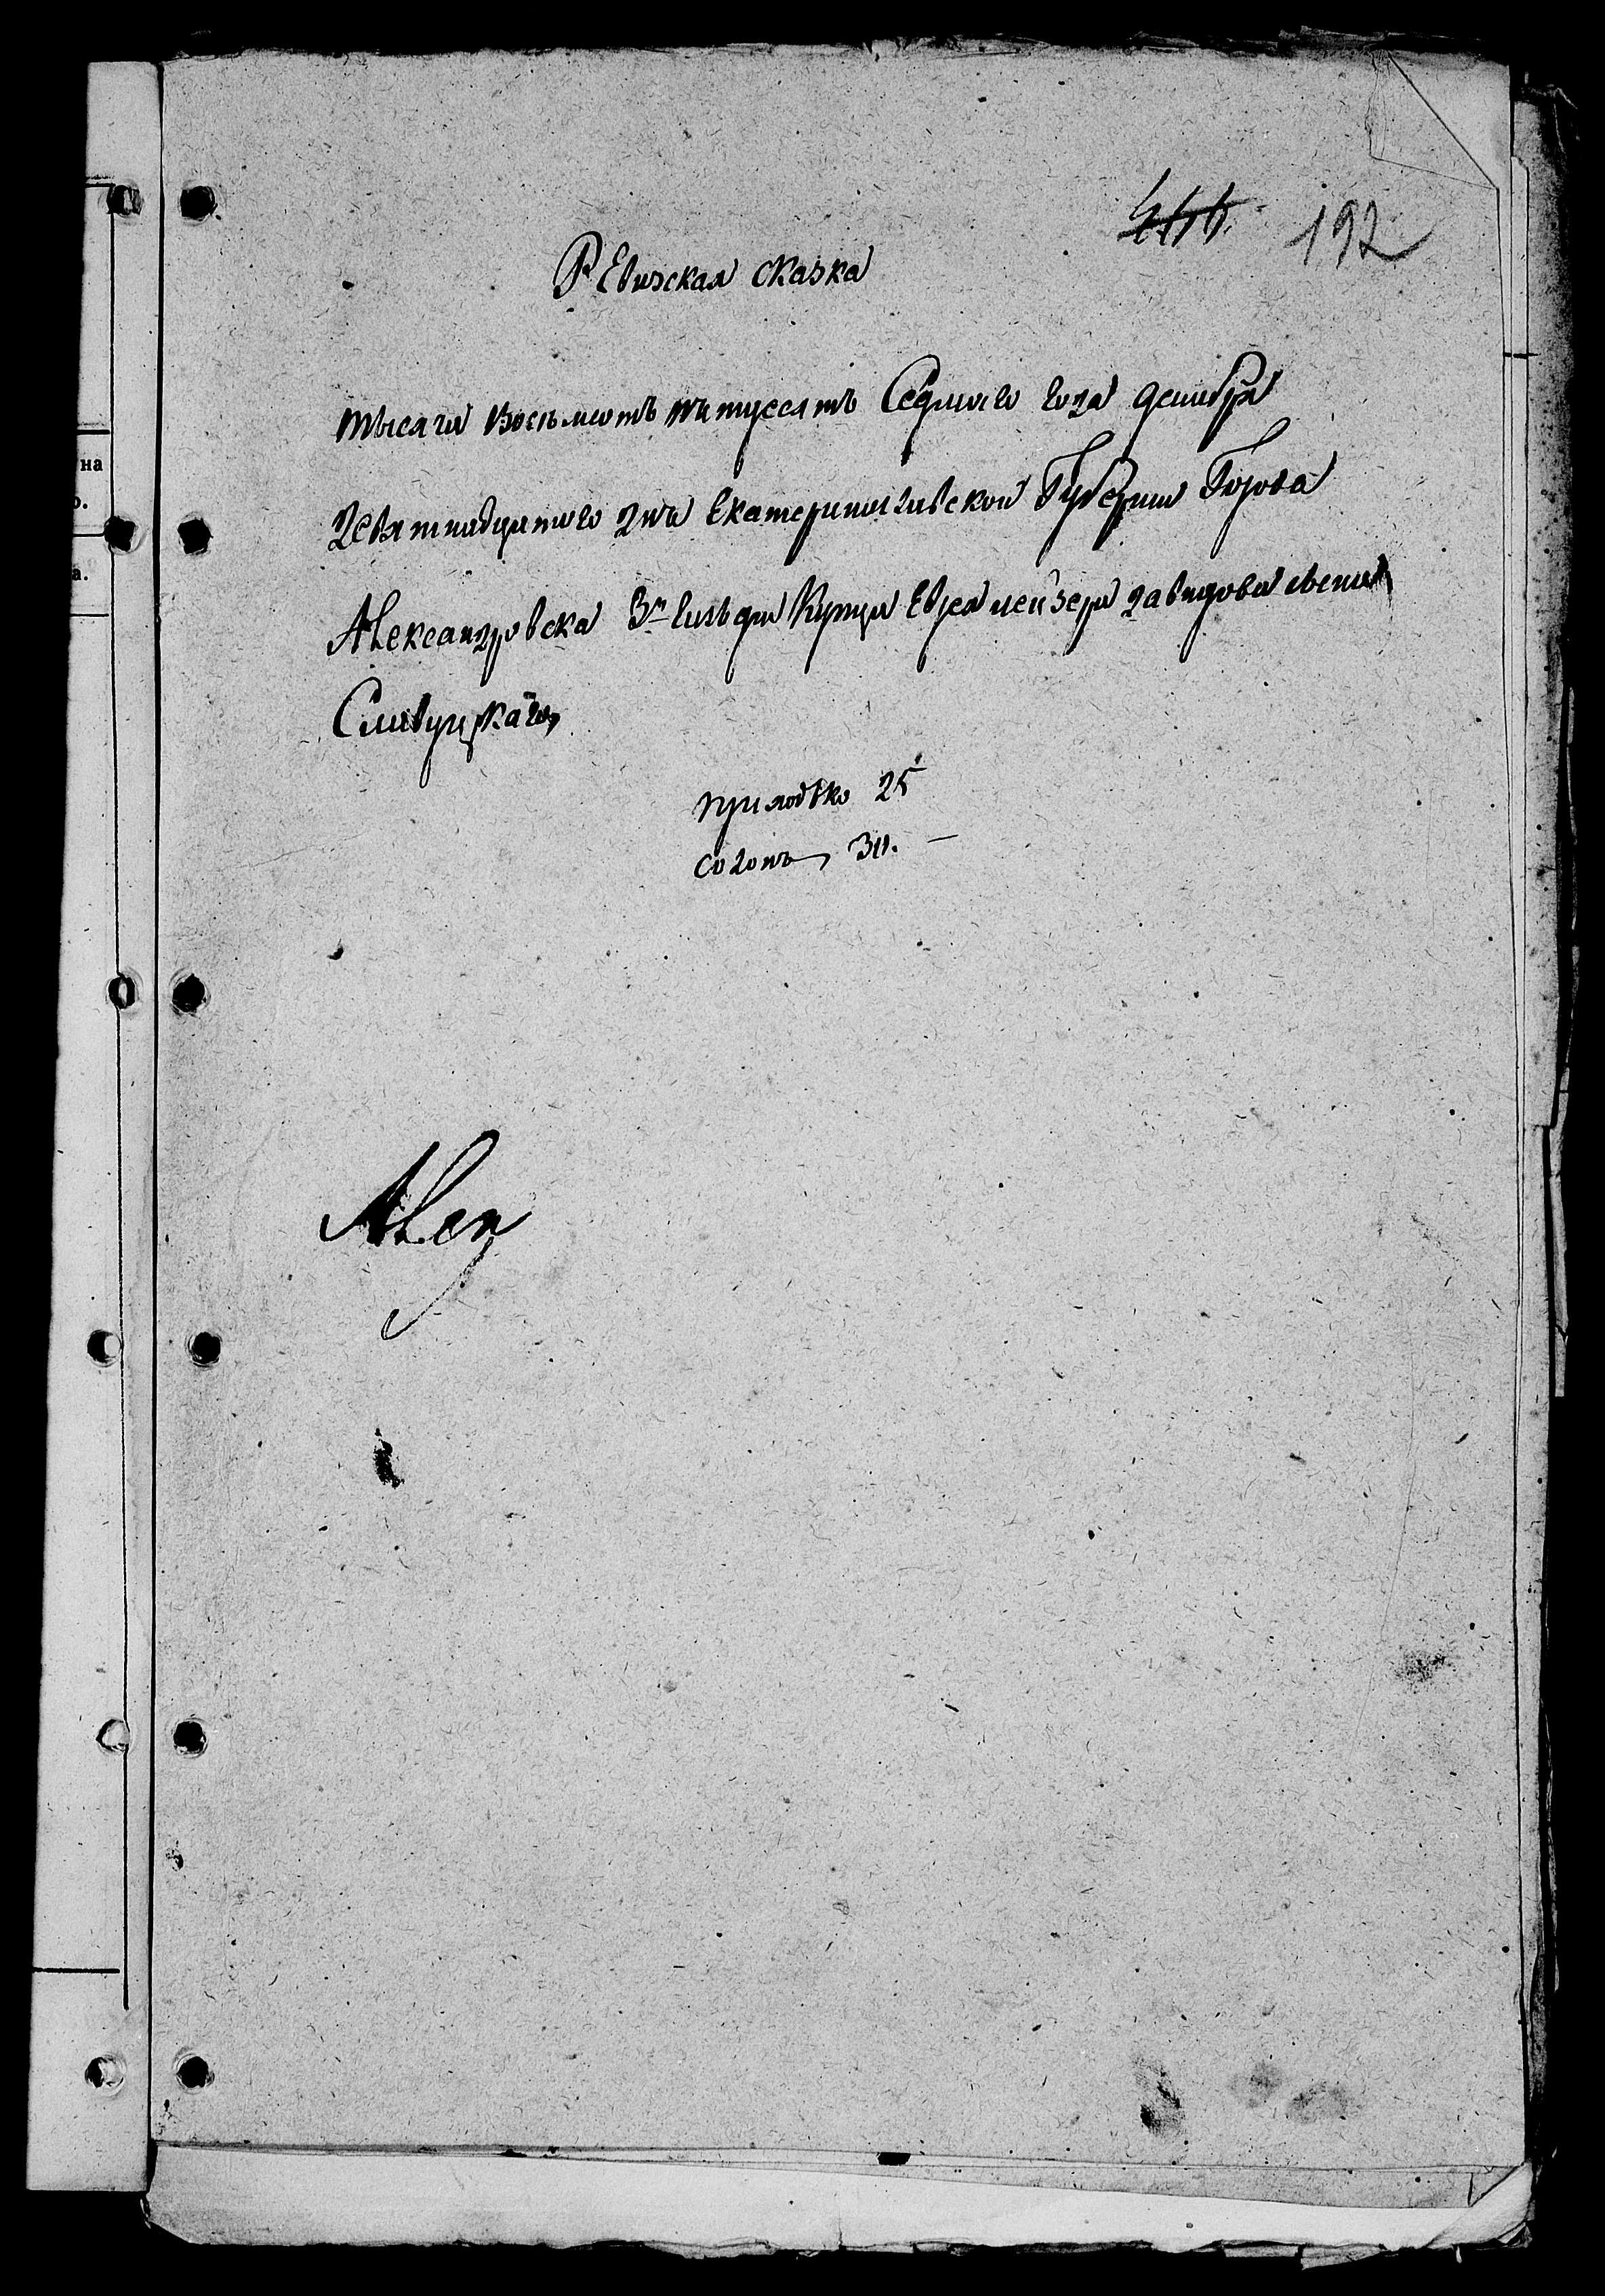 192
Ревизская сказка
тысяча восемьсотъ пятдесятъ Седмого года декабря
девятнадцатого дня Екатеринославской Губернии Города
Александровска 3й гильдіи Купца Еврея Лейзера Давидова
Славуцкаго,
25
Алек
на
о.
а.